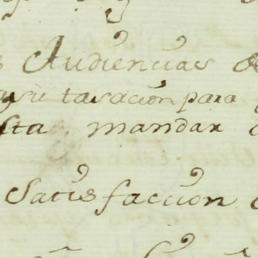 Audiencias
su tasacion para
mandar
Satisfaccion